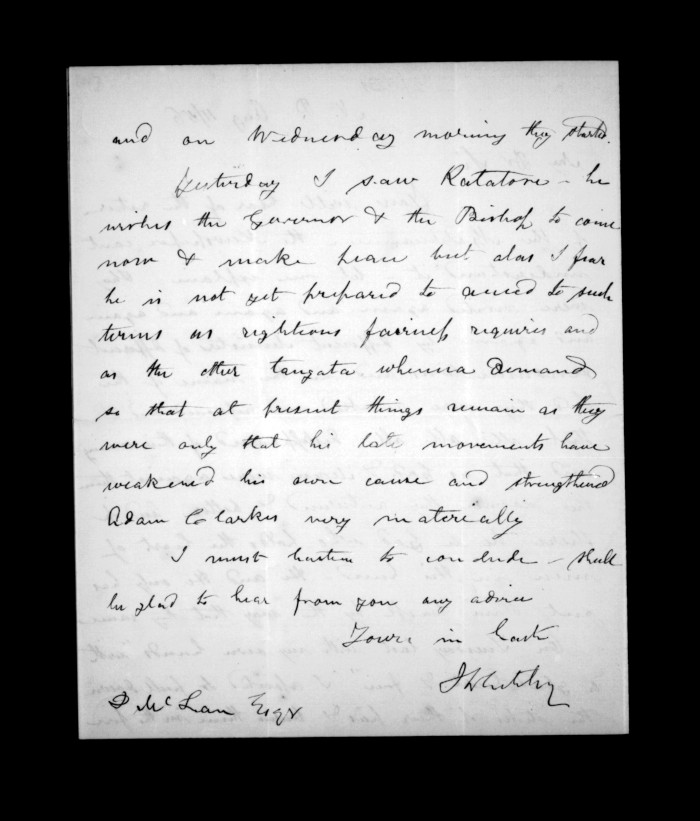 and on Wednesday morning they started.
Yesterday I saw Ratatore – he
wishes the Governor & the Bishop to come
now & make peace but alas I fear
he is not yet prepared to acceed to such
terms as righteous fairness requires and
as the other tangata whenua demand
so that at present things remain as they
were only that his late movements have
weakened his own cause and strengthened
Adam Clarkes very materially
I must hasten to conclude – shall
be glad to hear from you any advice
Yours in haste
D McLean Esqr